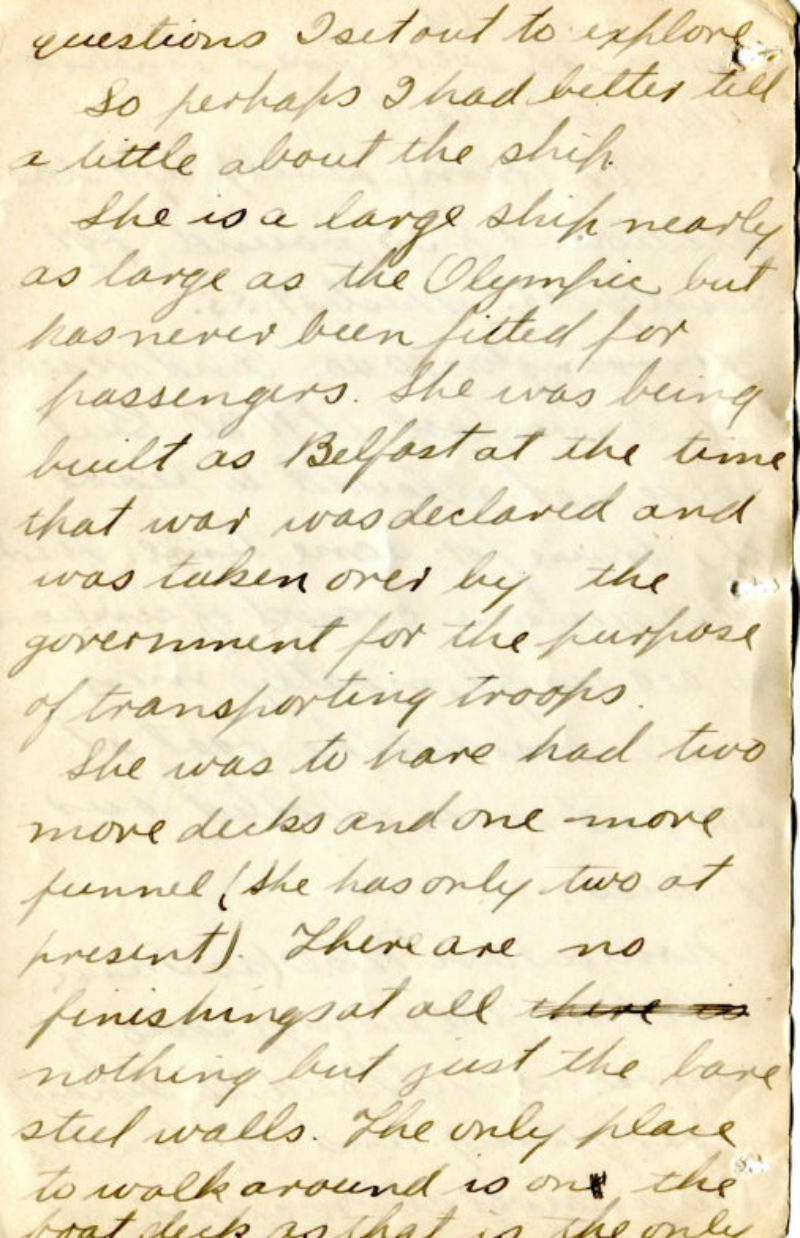 questions I set out to explore
So perhaps I had better tell
a little about the ship.
She is a large ship nearly
as large as the Olympic but
has never been fitted for
passengers. She was being
built as Belfast at the time
that war was declared and
was taken over by the
government for the purpose
of transporting troops.
She was to have had two
more decks and one more
funnel (she has only two at
present). There are no
finishings at all there is
nothing but just the bare
steel walls. The only place
to walk around is on the
boat deck as that is the only